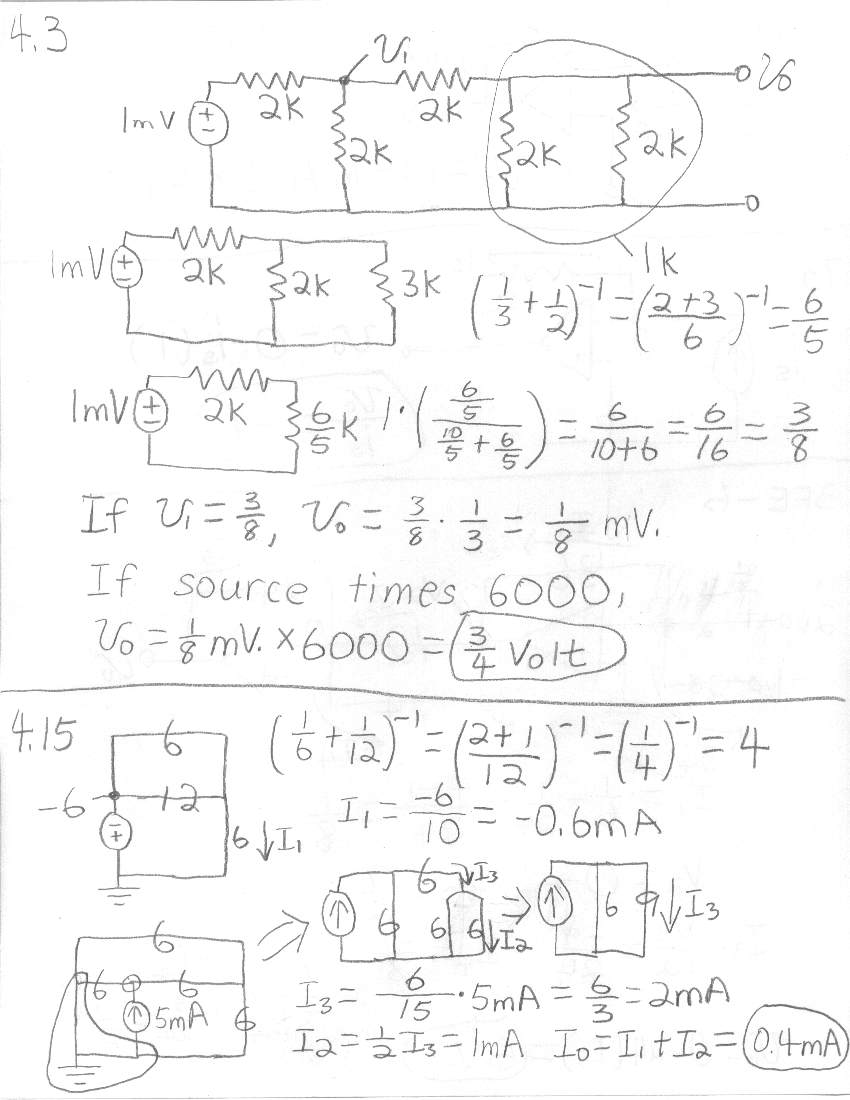 4.3
V₁
V₀
1mV 2K 2K 2K 2K 2K
1k
1mV 2K 2K 3K (1/3 + 1/2)⁻¹ = (2+3/6)⁻¹ = 6/5
1mV 2K 6/5 K 1·((6/5)/(10/5 + 6/5)) = 6/(10+6) = 6/16 = 3/8
If V₁ = 3/8, V₀ = 3/8 · 1/3 = 1/8 mV.
If source times 6000,
V₀ = 1/8 mV. × 6000 = 3/4 Volt
4.15
6 (1/6 + 1/12)⁻¹ = (2+1/12)⁻¹ = (1/4)⁻¹ = 4
-6 12 6 ↓I₁ I₁ = -6/10 = -0.6mA
6 ↓I₃ 6 6 6 ↓I₂ ⇒ 6 9 ↓I₃
6 6 6 5mA 6 ⇒
I₃ = 6/15 · 5mA = 6/3 = 2mA
I₂ = 1/2 I₃ = 1mA I₀ = I₁ + I₂ = 0.4mA